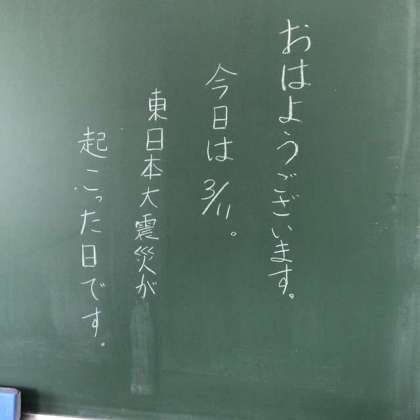 おはようございます。
今日は3/11。
東日本大震災が
起こった日です。